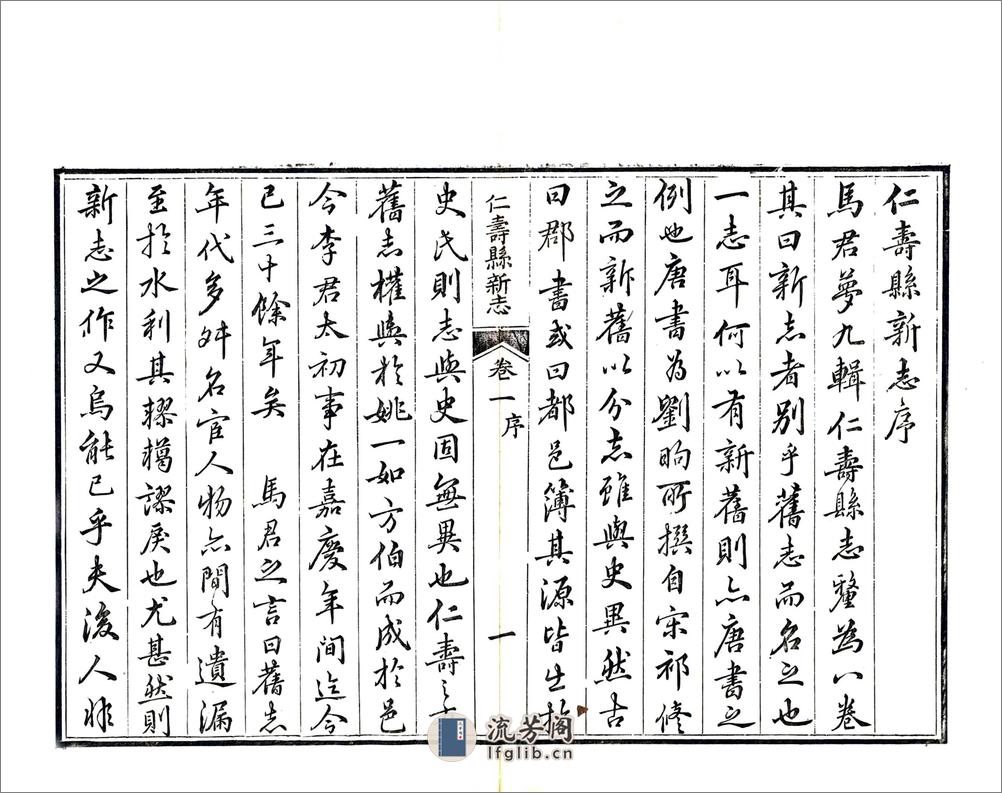 仁壽縣新志序
馬君夢九輯仁壽縣志釐為八卷
其曰新志者別乎舊志而名之也
一志耳何以有新舊則亦唐書之
例也唐書為劉昫所撰自宋祁修
之而新舊以分志雖與史異然古
曰郡書或曰都邑簿其源皆生於
仁壽縣新志
卷一 序
一
史氏則志與史固無異也仁壽之
舊志權輿於姚一如方伯而成於邑
令李君太初事在嘉慶年間迄今
已三十餘年矣 馬君之言曰舊志
年代多舛名宦人物亦間有遺漏
至於水利其轇轕謬戾也尤甚然則
新志之作又烏能已乎夫後人
流芳阁
lfglib.cn